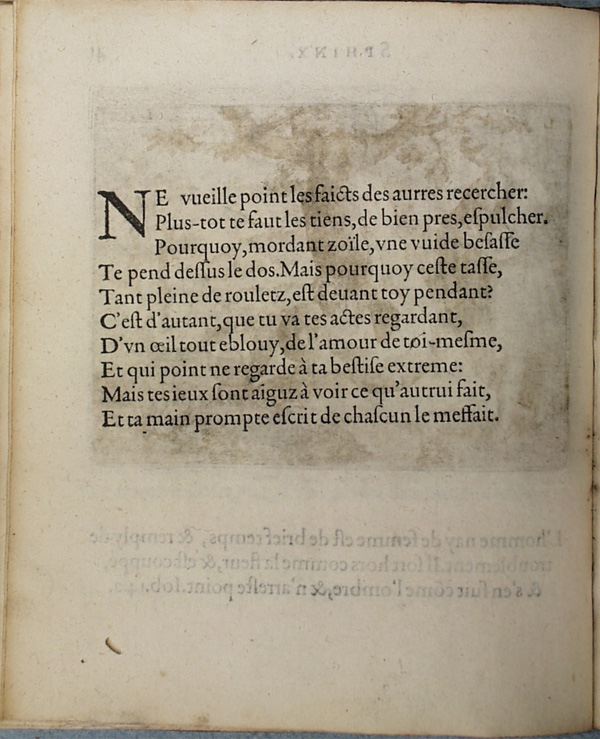 NE vueille point les faicts des aurres recercher:
Plus-tot te faut les tiens, de bien pres, eſpulcher.
Pourquoy, mordant zoïle, vne vuide beſaſſe
Te pend deſſus le dos. Mais pourquoy ceſte taſſe,
Tant pleine de rouletz, eſt deuant toy pendant?
C'eſt d'autant, que tu va tes actes regardant,
D'vn œil tout eblouy, de l'amour de toi-meſme,
Et qui point ne regarde à ta beſtiſe extreme:
Mais tes ieux ſont aiguz à voir ce qu'autrui fait,
Et ta main prompte eſcrit de chaſcun le meffait.